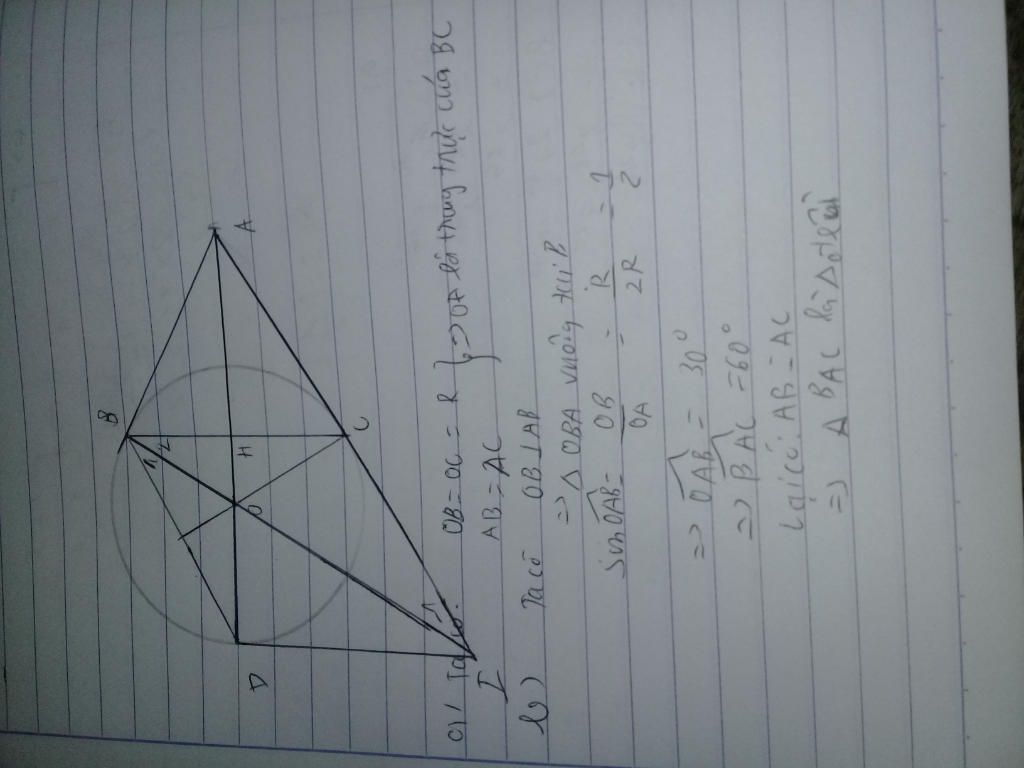 B
A
1 2
H
C
O
D
1
I
a) Ta có: OB = OC = R
AB = AC } => OA là trung trực của BC
b) Ta có OB ⊥ AB
=> Δ OBA vuông tại B
Sin OAB = OB / OA = R / 2R = 1 / 2
=> OAB = 30°
=> BAC = 60°
Lại có: AB = AC
=> Δ BAC là Δ đều